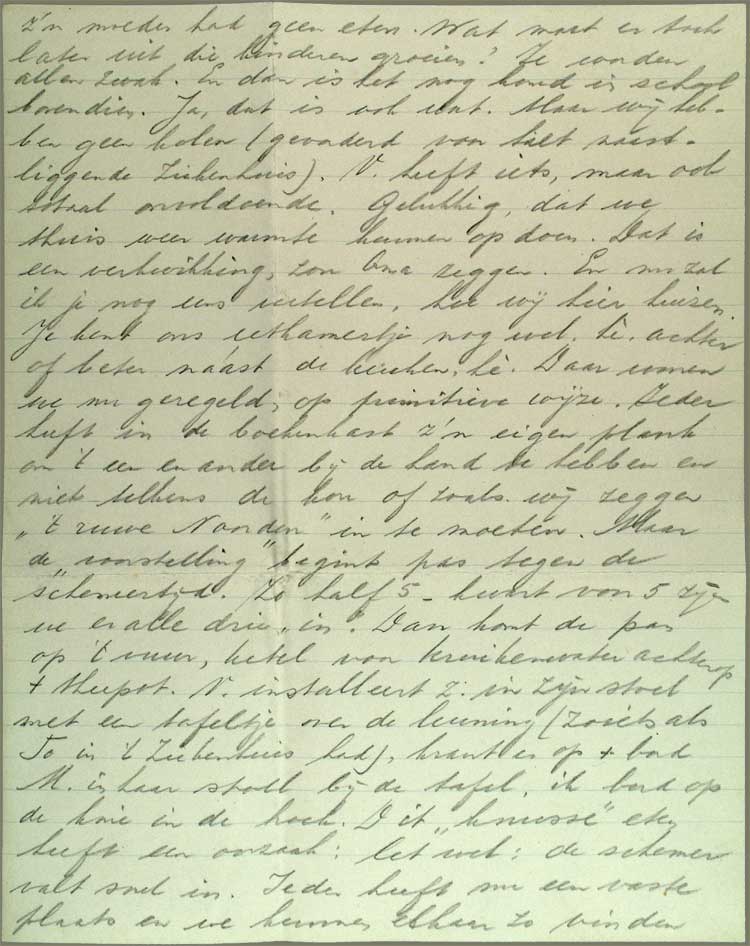 z'n moeder had geen eten. Wat moet er toch
later uit die kinderen groeien? Ze worden
allen zwak. En dan is het nog koud in school
bovendien. Ja, dat is ook wat. Maar wij heb-
ben geen kolen (gevorderd voor het naast-
liggende Ziekenhuis). V. heeft iets, maar ook
totaal onvoldoende. Gelukkig, dat we
thuis weer warmte kunnen opdoen. Dat is
een verkwikking, zou Oma zeggen. En nu zal
ik je nog eens vertellen, hoe wij hier huizen.
Je kent ons eetkamertje nog wel, hè, achter
of beter náást de keuken, hè. Daar wonen
we nu geregeld, op primitieve wijze. Ieder
heeft in de boekenkast z'n eigen plank
om 't een en ander bij de hand te hebben en
niet telkens de kou of zoals wij zeggen
„'t ruwe Noorden" in te moeten. Maar
de „voorstelling" begint pas tegen de
schemertijd. Zo half 5 - kwart voor 5 zijn
we er alle drie „in". Dan komt de pan
op 't vuur, ketel voor kruikenwater achterop
+ theepot. V. installeert z. in zijn stoel
met een tafeltje over de leuning (zoiets als
To in 't Ziekenhuis had), krant er op + bord
M. in haar stoel bij de tafel, ik bord op
de knie in de hoek. Dit „knusse" eten
heeft een oorzaak: let wel: de schemer
valt snel in. Ieder heeft nu een vaste
plaats en we kunnen elkaar zo vinden